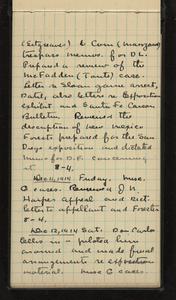 (Setgreaves) & Coon (Manzano)
trespass memos. for D.L.
Prepared a review of the
McFadden (Tonto) case.
Letter re Sloan game arrest,
Datil, also letters re Exposition
exhibit and Santa Fe Canon
Bulletin. Reviewed the
description of New Mexico
Forests prepared for the San
Diego exposition and dictated
Memo for D.F. concerning
it. 8-4.
Dec 11, 1914. Friday. Misc
G cases. Reviewed J. N.
Harper appeal and dict.
letter to appellant and Forester
8-4.
Dec 12, 1914 Sat. Don Carlos
Ellis in - piloted him
around and made final
arrangements re exposition
material. Misc G cases.